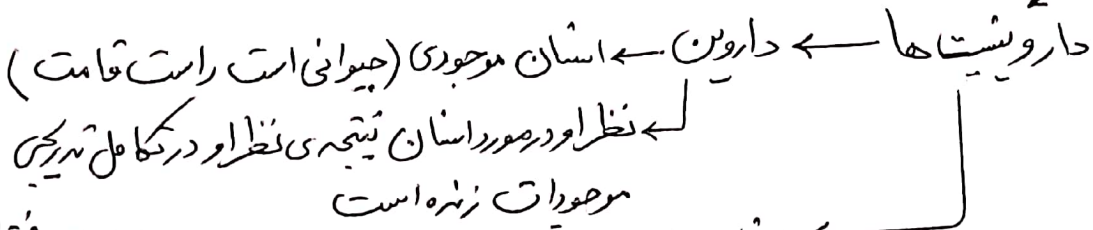 داروینیست‌ها ← داروین ← انسان موجودی (حیوانی است راست قامت)
← نظر او در مورد انسان نتیجه‌ی نظر او در تکامل تدریجی
موجودات زنده است